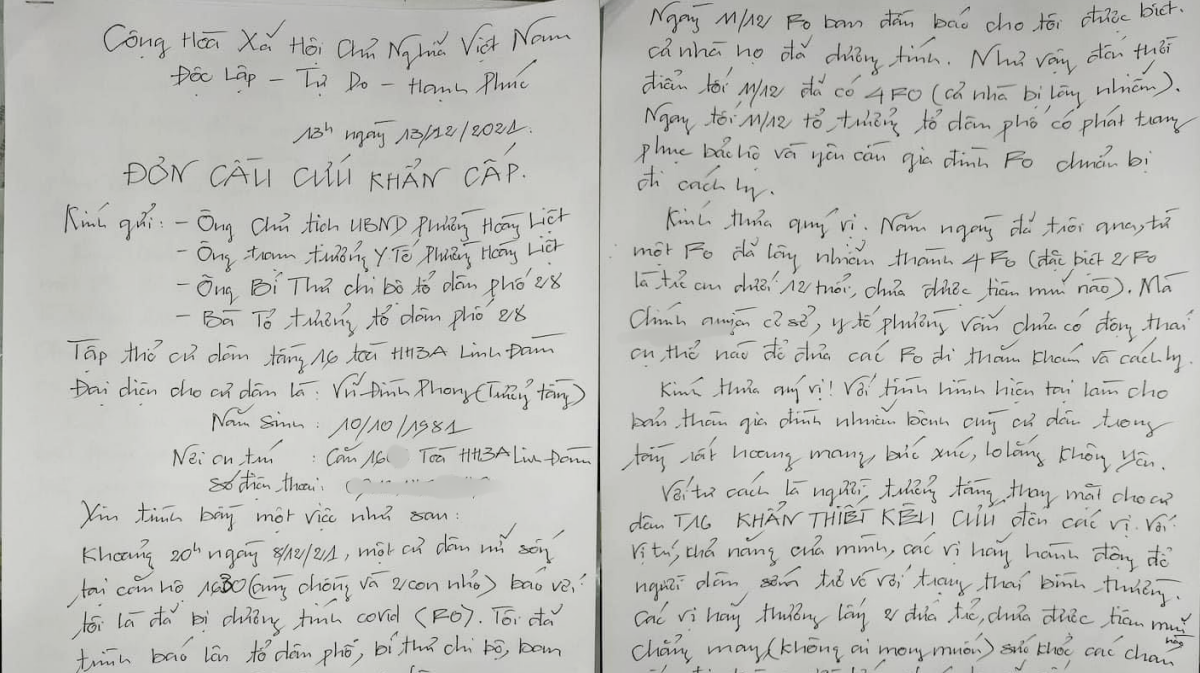 Cộng Hoà Xã Hội Chủ Nghĩa Việt Nam
Độc Lập - Tự Do - Hạnh Phúc
13h ngày 13/12/2021.
ĐƠN CẦU CỨU KHẨN CẤP.
Kính gửi: - Ông Chủ tịch UBND Phường Hoàng Liệt
- Ông trạm trưởng Y Tế Phường Hoàng Liệt
- Ông Bí Thư chi bộ tổ dân phố 28
- Bà Tổ trưởng tổ dân phố 28
Tập thể cư dân tầng 16 toà HH3A Linh Đàm
Đại diện cho cư dân là: Vũ Đình Phong (Trưởng tầng)
Năm Sinh: 10/10/1981
Nơi cư trú: Căn 16 Toà HH3A Linh Đàm
Số điện thoại:
Xin trình bày một việc như sau:
Khoảng 20h ngày 8/12/21, một cư dân nữ sống
tại căn hộ (cùng chồng và 2 con nhỏ) báo với
tôi là đã bị dương tính covid (F0). Tôi đã
trình báo lên tổ dân phố, bí thư chi bộ, ban
Ngày 11/12 F0 ban đầu báo cho tôi được biết.
cả nhà họ đã dương tính. Như vậy đến thời
điểm tối 11/12 đã có 4 F0 (cả nhà bị lây nhiễm).
Ngay tối 11/12 tổ trưởng tổ dân phố có phát trang
phục bảo hộ và yêu cầu gia đình F0 chuẩn bị
đi cách ly.
Kính thưa quý vị. Năm ngày đã trôi qua, từ
một F0 đã lây nhiễm thành 4 F0 (đặc biệt 2 F0
là trẻ em dưới 12 tuổi, chưa được tiêm mũi nào). Mà
Chính quyền cơ sở, y tế phường vẫn chưa có động thái
cụ thể nào để đưa các F0 đi thăm khám và cách ly.
Kính thưa quý vị! Với tình hình hiện tại làm cho
bản thân gia đình nhiễm bệnh cùng cư dân trong
tầng rất hoang mang, bức xúc, lo lắng không yên.
Với tư cách là người trưởng tầng, thay mặt cho cư
dân T16 KHẨN THIẾT KÊU CỨU đến các vị. Với
vị trí, khả năng của mình, các vị hãy hành động để
người dân sớm trở về với trạng thái bình thường.
Các vị hãy thương lấy 2 đứa trẻ, chưa được tiêm mũi nào
chẳng may (không ai mong muốn) sức khỏe các cháu